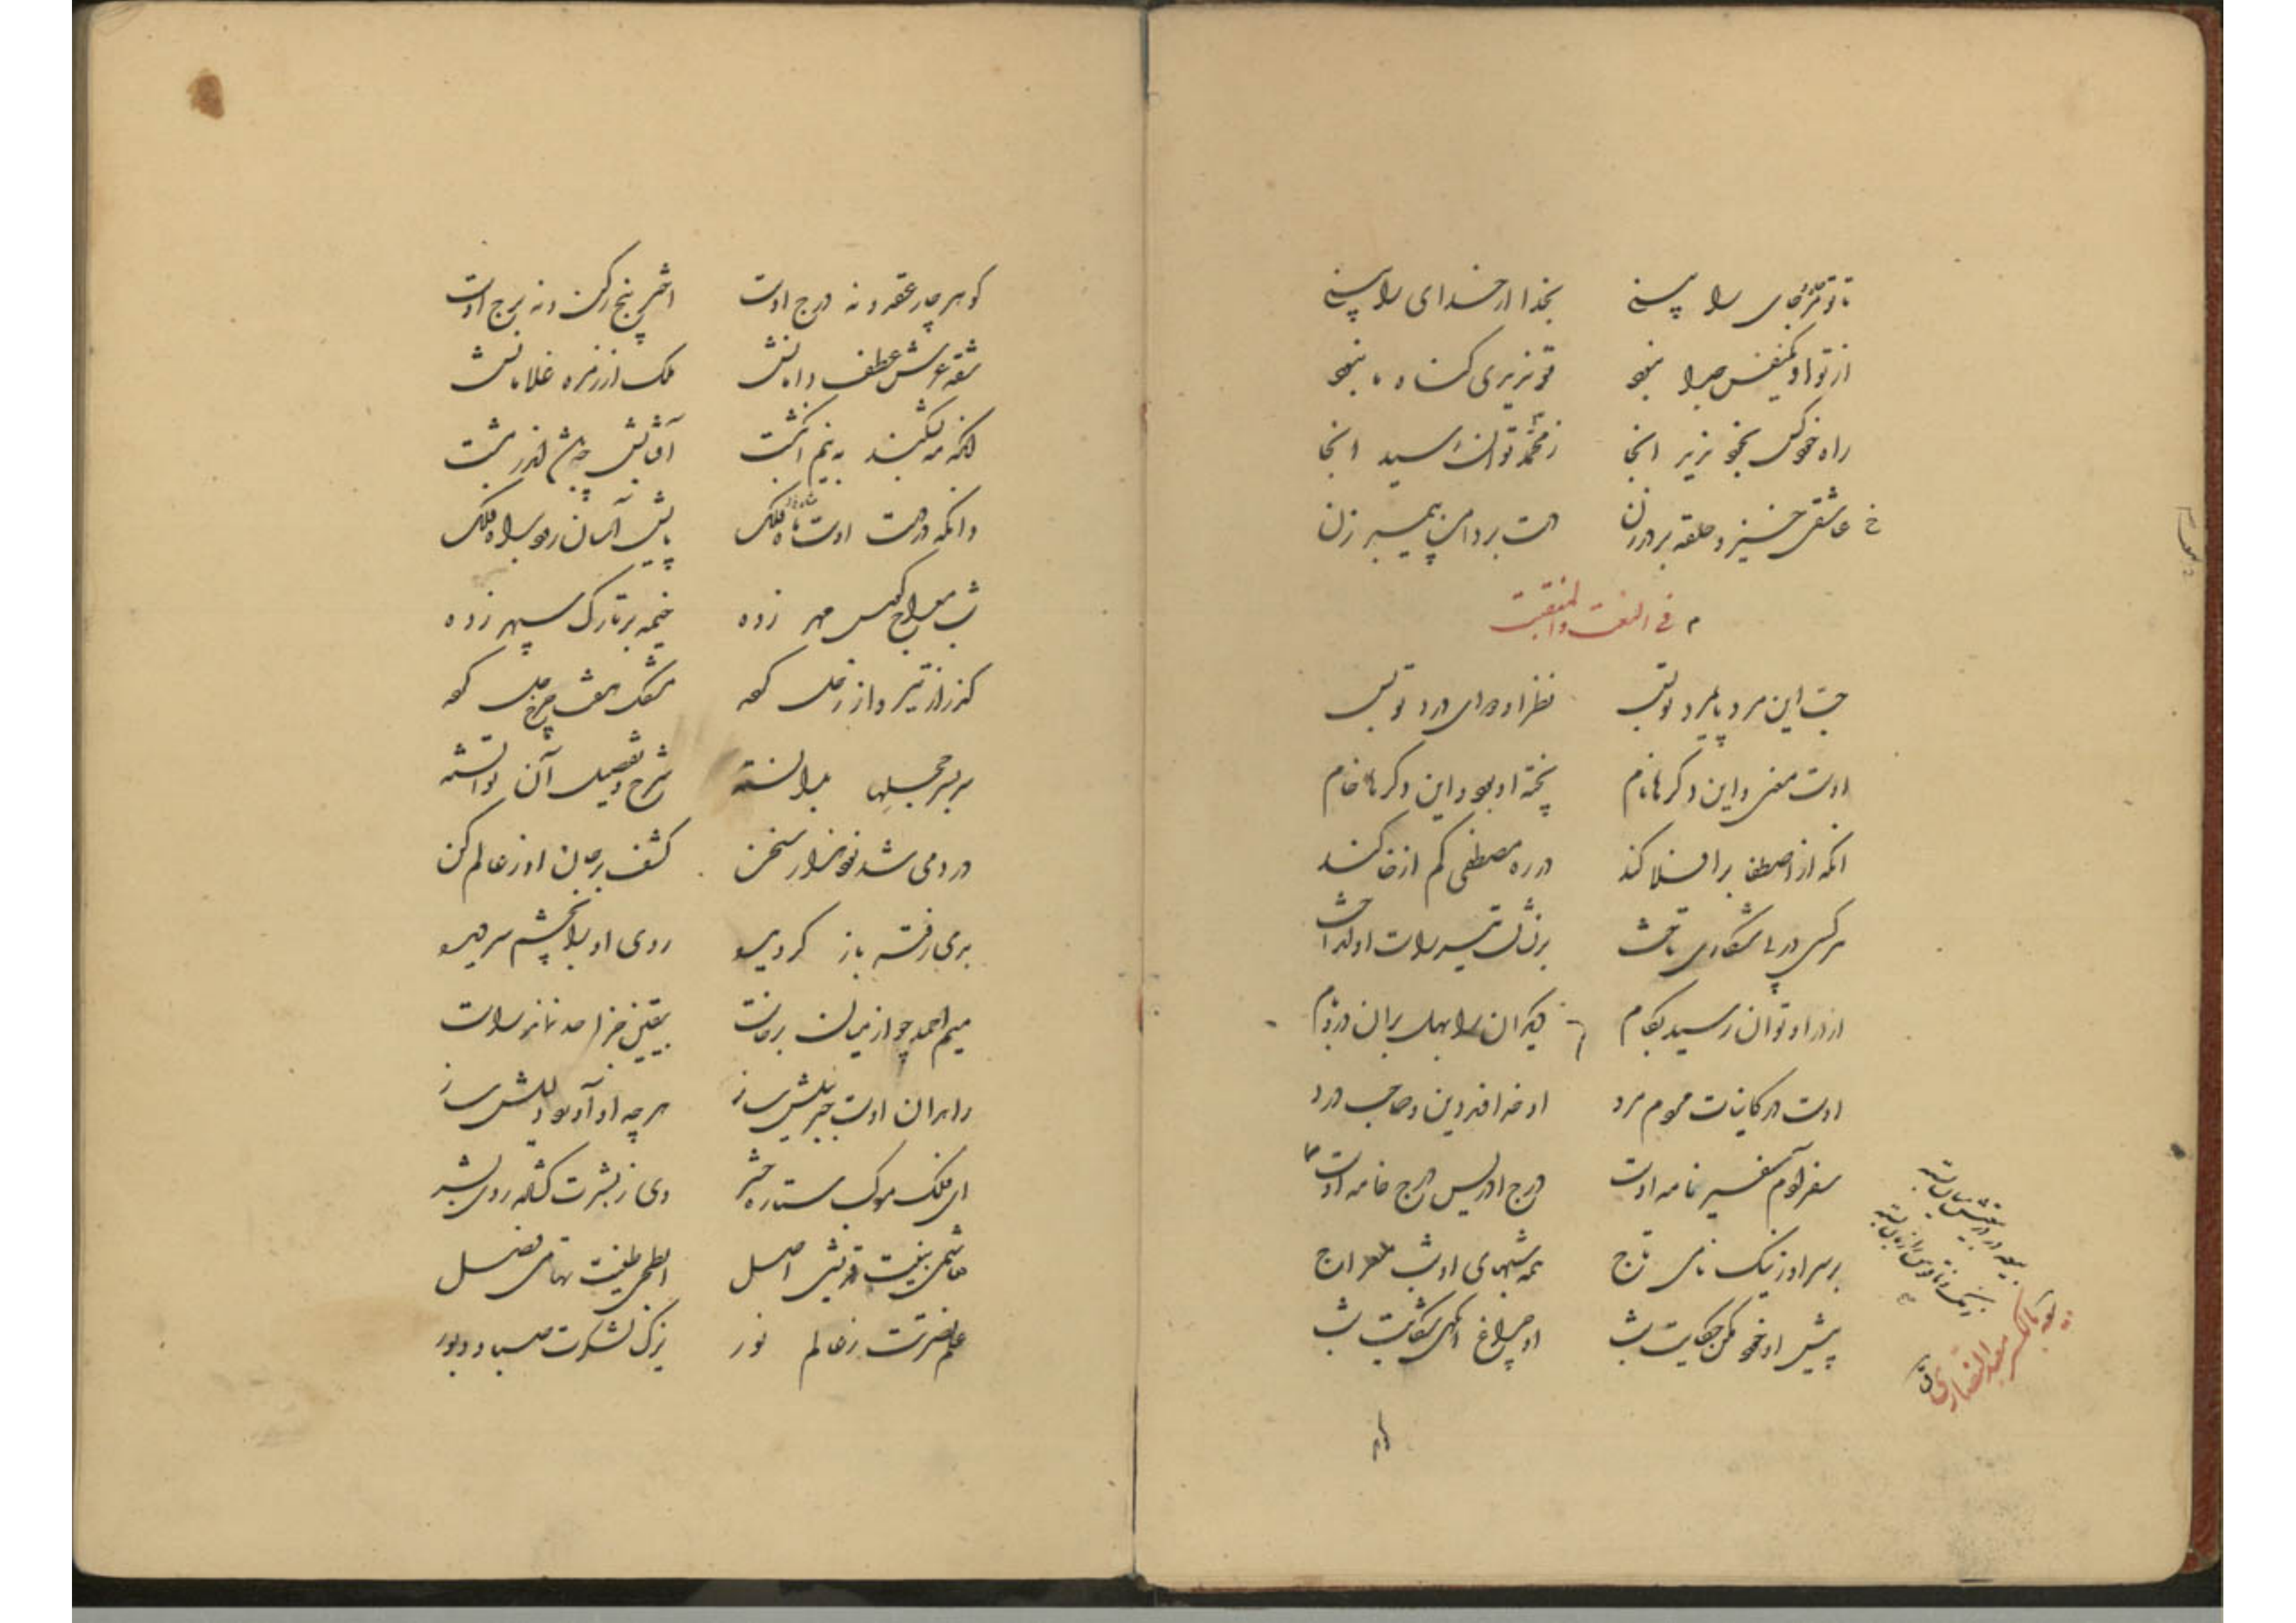 تا تو مر جای را پسنے بخدا ار خدای را بینے
از تو او یکنفس جدا نبود تو نزیری گناه ما نبود
راه خود کن بخود نزیر انجا ز محمد توان رسید انجا
عاشقی خیز و حلقه بر در زن دست بر دامن پیمبر زن
فی النعت والمنقبت
چیست این مرد پایمرد تو بس نظر او دوای درد تو بس
اوست معنی و این دگرها نام پخته او بود و این دگرها خام
انکه از اصطفا بر افلاکند در ره مصطفی کم از خاکند
هر کسی در پی شکاری تاخت برنشان تیر راست او انداخت
از در او توان رسید بکام دیگران را بهل بران در و بام
اوست در کاینات مردم مرد او خداوند دین و صاحب درد
سفر آدم سفیر نامه اوست درج ادریس درج خامه اوست
بر سر او ز نیک نامی تاج همه شبهای او شب معراج
پیش او خود مکن حکایت شب او چراغ انگهی شکایت شب
گوهر چار عقد و نه درج اوست اختر پنج رکن و نه برج اوست
شقه عرش عطف دامانش ملک از زمره غلامانش
انکه مه بشکند به نیم انگشت آفتابش چه باشد اندر مشت
وانکه در دست اوست ماه فلک پایش آسان رود براه فلک
شب معراج کوس مهر زده خیمه بر تارک سپهر زده
گذر از تیر و از زحل کرده مشکل هفت چرخ حل کرده
سر بسر جملها بدانسته شرح و تفصیل آن توانسته
در دمی شد نود هزار سخن کشف بر جان او ز عالم کن
برمی رفته باز گردیده روی او را بچشم سر دیده
میم احمد چو از میان برخاست بیقین خز احد نماند راست
راهدان اوست جبرئیلش ساز هرچه او آورد دلیلش ساز
ای فلک موکب ستاره حشر وی ز بشرت گشاده روی بشر
هاشمی نیت قریشی اصل ابطحی طینت تهامی فضل
علم نصرتت ز عالم نور یزک لشکرت صبا و دبور